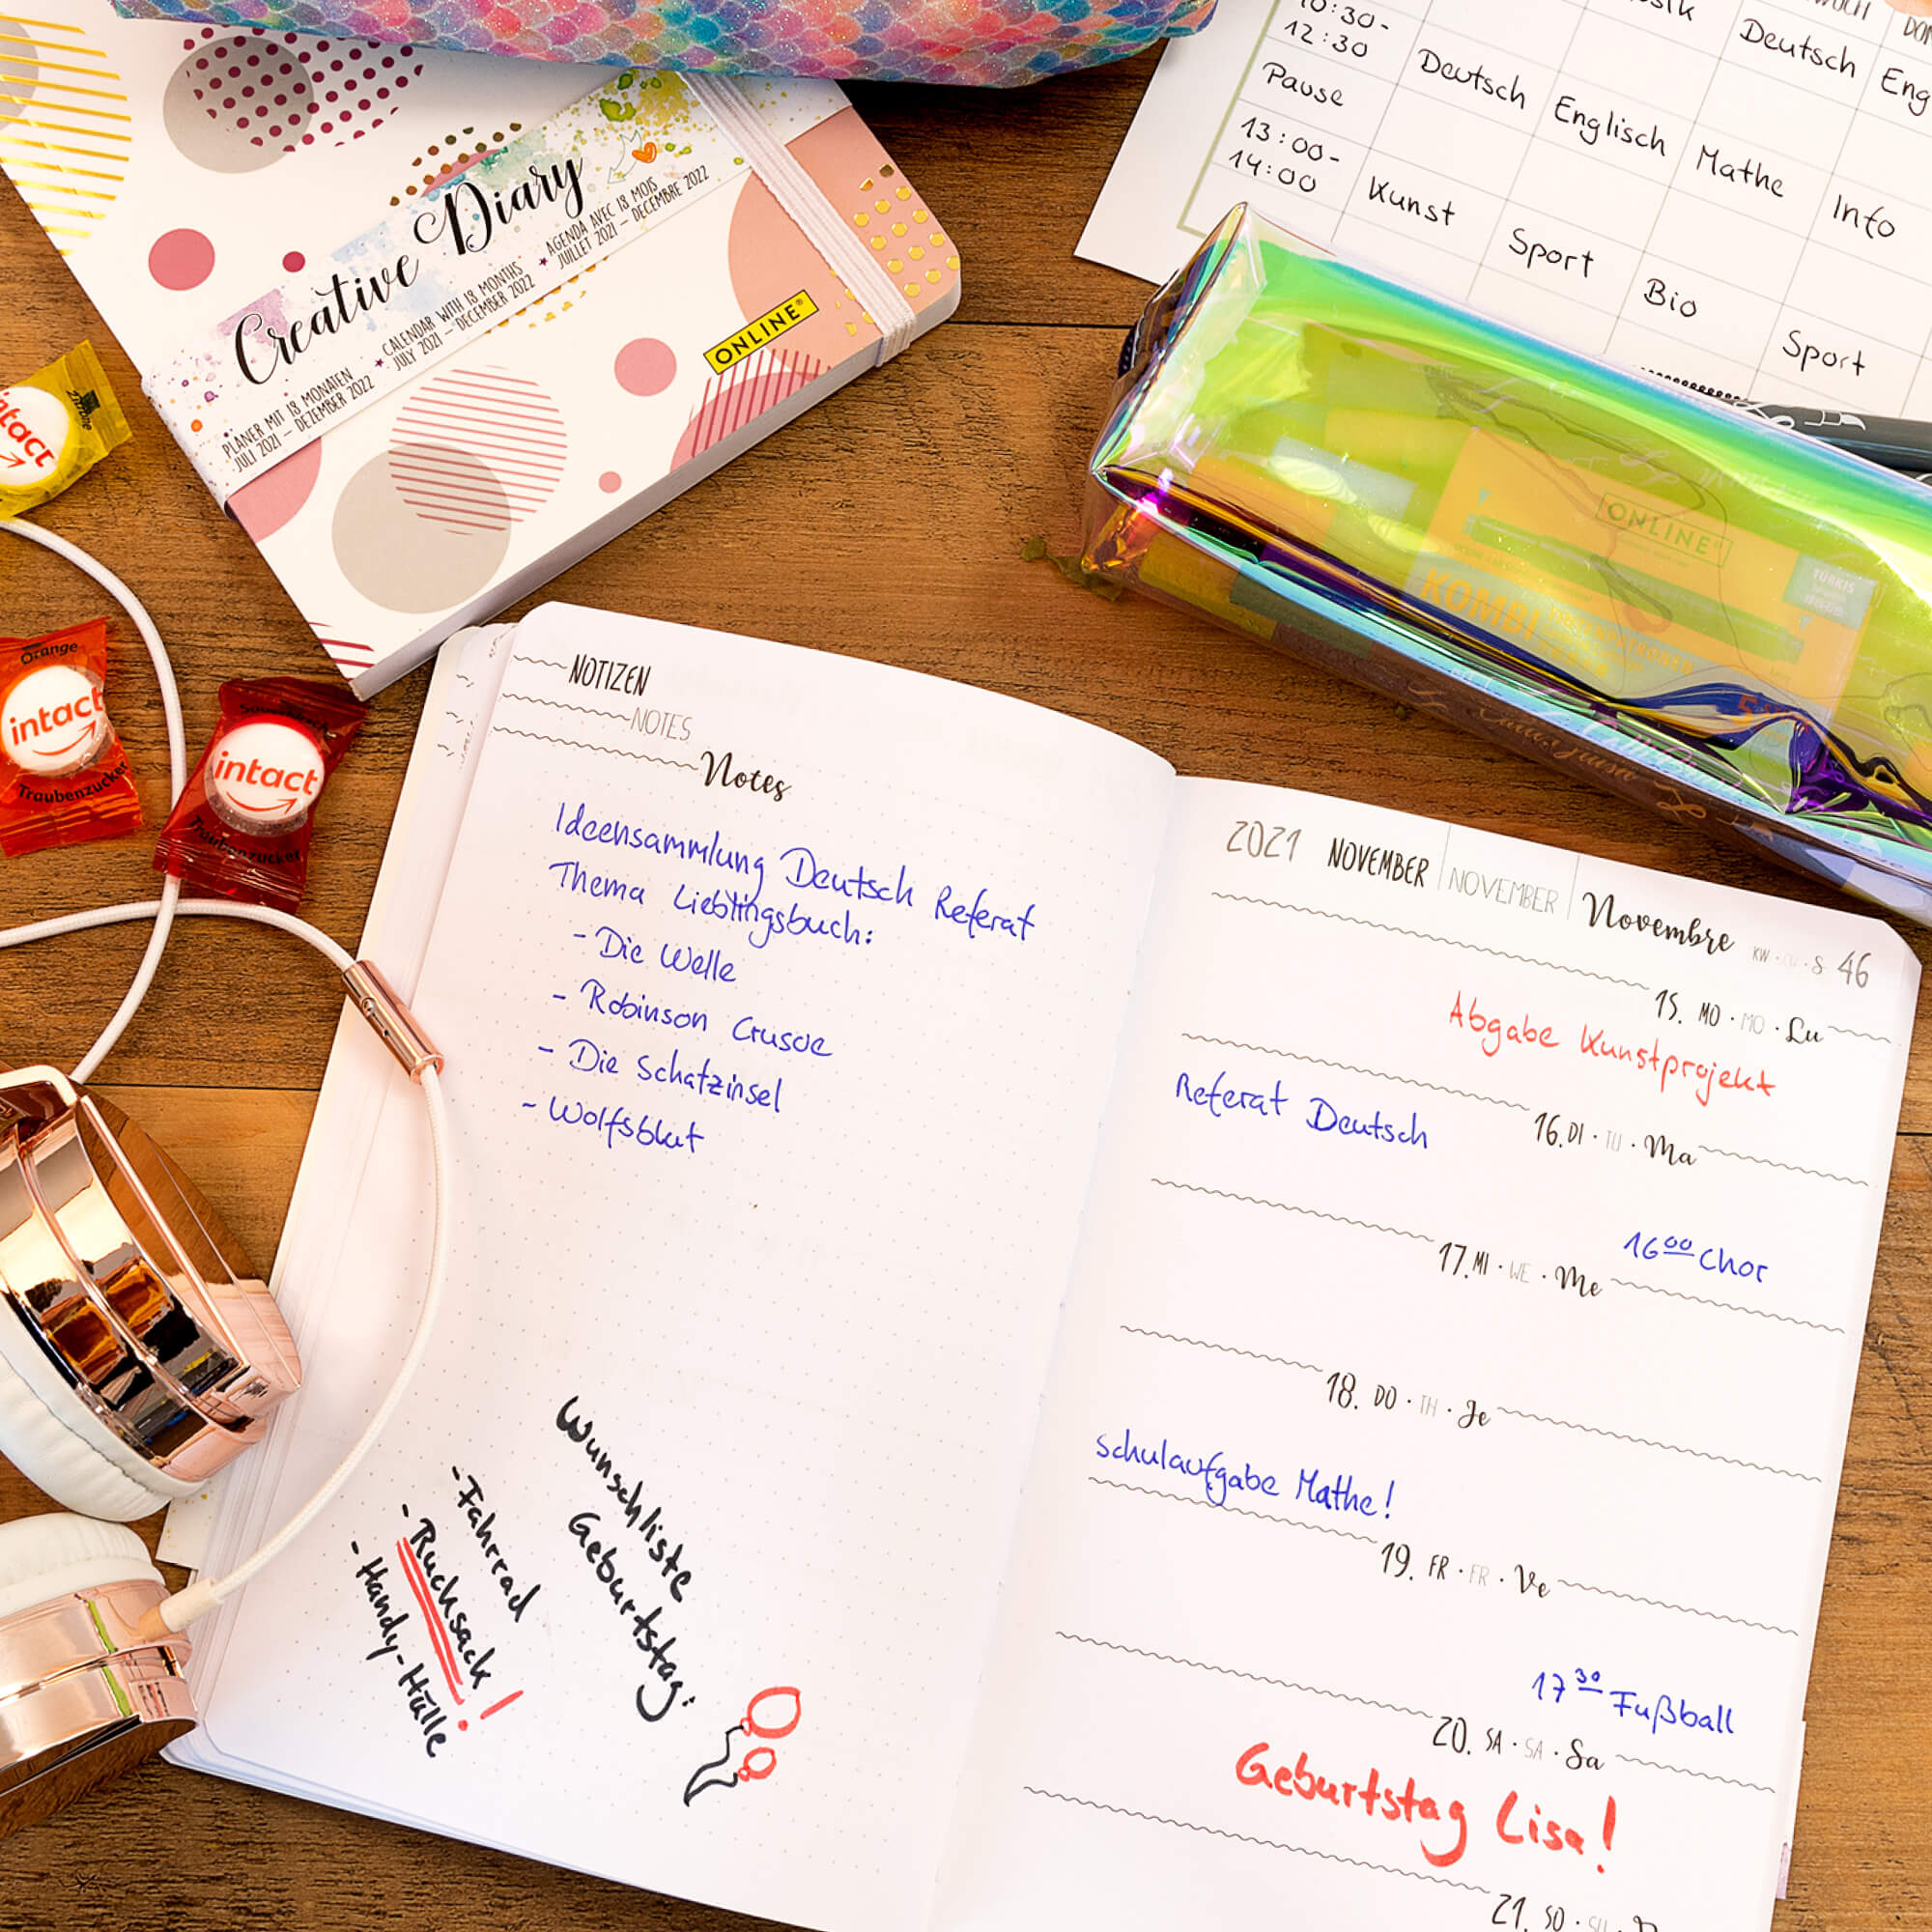 Creative Diary
PLANER MIT 18 MONATEN
JULI 2021 – DEZEMBER 2022
CALENDAR WITH 18 MONTHS
JULY 2021 – DECEMBER 2022
AGENDA AVEC 18 MOIS
JUILLET 2021 – DECEMBRE 2022
ONLINE®
10:30-
12:30
Deutsch
Pause
Deutsch
Englisch
Mathe
Info
13:00-
14:00
Kunst
Sport
Bio
Sport
ONLINE®
KOMBI
TÜRKIS
intact
Zitrone
Orange
intact
Traubenzucker
intact
Traubenzucker
NOTIZEN
NOTES
Notes
Ideensammlung Deutsch Referat
Thema Lieblingsbuch:
- Die Welle
- Robinson Crusoe
- Die Schatzinsel
- Wolfsblut
Wunschliste
Geburtstag:
- Fahrrad
- Rucksack!
- Handy-Hülle
2021 NOVEMBER NOVEMBER Novembre KW · S 46
15. MO · MO · Lu
Abgabe Kunstprojekt
16. DI · TU · Ma
Referat Deutsch
17. MI · WE · Me
16⁰⁰ Chor
18. DO · TH · Je
Schulaufgabe Mathe!
19. FR · FR · Ve
17³⁰ Fußball
20. SA · SA · Sa
Geburtstag Lisa!
21. SO · SU ·